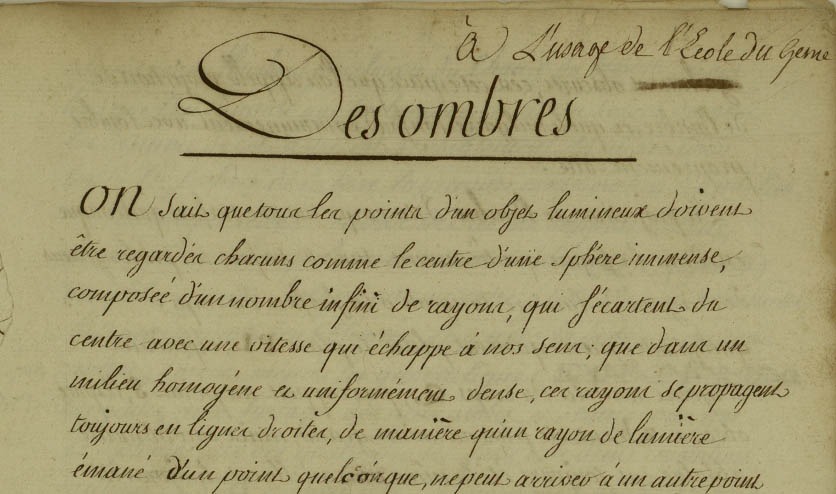 à L'usage de l'Ecole du Genie
Des ombres
on sait que tous les points d'un objet lumineux doivent
être regardés chacuns comme le centre d'une sphère immense,
composée d'un nombre infini de rayons, qui s'écartent du
centre avec une vitesse qui échappe à nos sens; que dans un
milieu homogéne et uniformément dense, ces rayons se propagent
toujours en lignes droites, de manière qu'un rayon de lumière
émané d'un point quelconque, ne peut arriver à un autre point